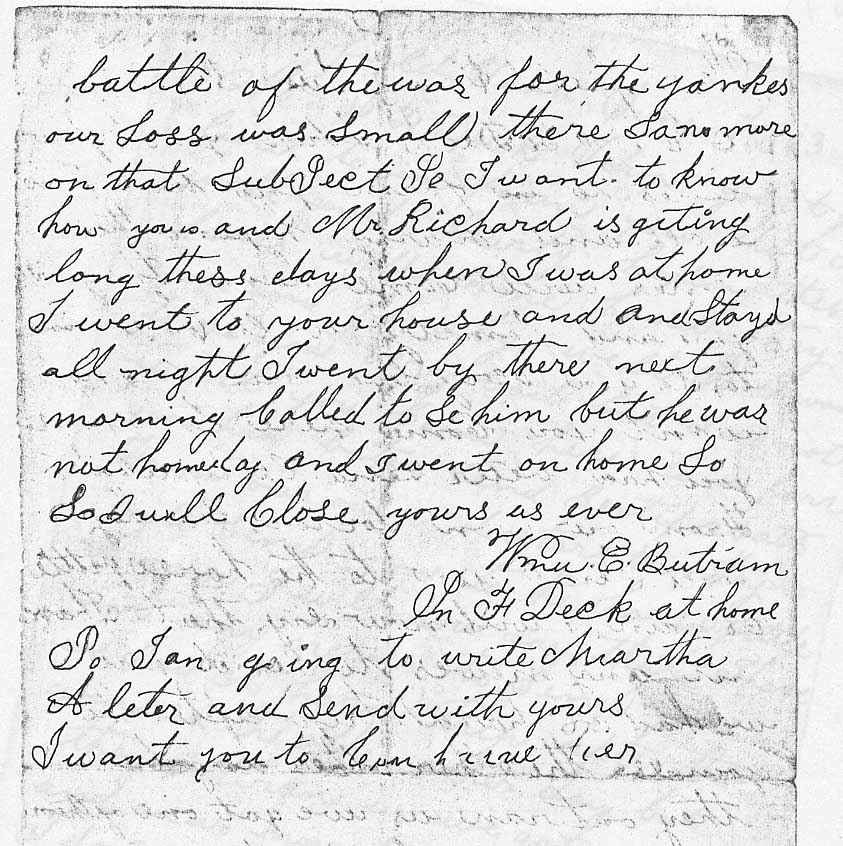 battle of the was for the yankes
our Loss was Small there Sa no more
on that SubPect So I want to know
how you is and Mr. Richard is giting
long thess days when I was at home
I went to your house and and Stayd
all night I went by there next
morning Called to Se him but he was
not home and I went on home So
So I will Close yours as ever
Wm. E. Butram
F Deck at home
Po I an going to write Martha
A leter and Send with yours
I want you to her